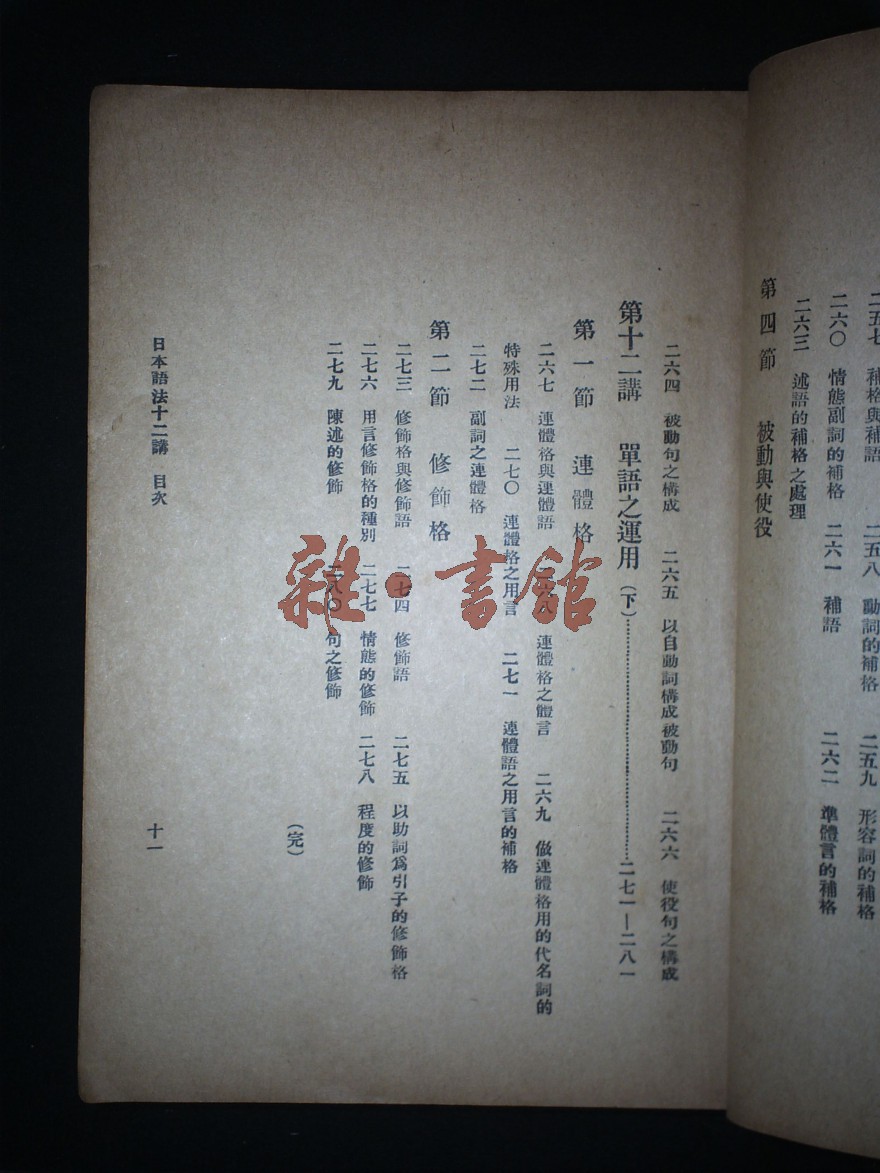 二五七 補格與補語 二五八 動詞的補格 二五九 形容詞的補格
二六〇 情態副詞的補格 二六一 補語 二六二 準體言的補格
二六三 述語的補格之處理
第四節 被動與使役
二六四 被動句之構成 二六五 以自動詞構成被動句 二六六 使役句之構成
第十二講 單語之運用(下)……………………二七一—二八一
第一節 連體格
二六七 連體格與連體語 二六八 連體格之體言 二六九 做連體格用的代名詞的
特殊用法 二七〇 連體格之用言 二七一 連體語之用言的補格
二七二 副詞之連體格
第二節 修飾格
二七三 修飾格與修飾語 二七四 修飾語 二七五 以助詞爲引子的修飾格
二七六 用言修飾格的種別 二七七 情態的修飾 二七八 程度的修飾
二七九 陳述的修飾 二八〇 句之修飾
(完)
日本語法十二講 目次 十一
雜·書館